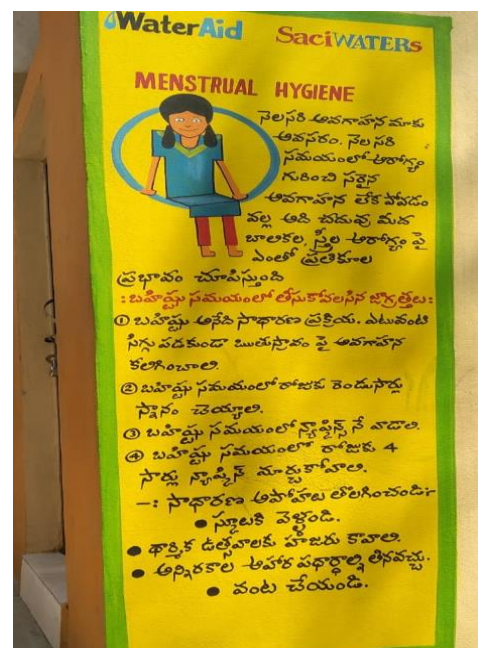 WaterAid SaciWATERs
MENSTRUAL HYGIENE
నెలసరి అవగాహన మాకు
అవసరం. నెలసరి
సమయంలో ఆరోగ్యం
గురించి సరైన
అవగాహన లేక పోవడం
వల్ల అది చదువు మీద
బాలికల, స్త్రీల ఆరోగ్యం పై
ఎంతో ప్రతికూల
ప్రభావం చూపిస్తుంది
: బహిష్టు సమయంలో తీసుకోవలసిన జాగ్రత్తలు :
① బహిష్టు అనేది సాధారణ ప్రక్రియ. ఎటువంటి
సిగ్గు పడకుండా ఋతుస్రావం పై అవగాహన
కలిగించాలి.
② బహిష్టు సమయంలో రోజుకు రెండుసార్లు
స్నానం చెయ్యాలి.
③ బహిష్టు సమయంలో న్యాప్కిన్స్ నే వాడాలి.
④ బహిష్టు సమయంలో రోజుకు 4
సార్లు న్యాప్కిన్ మార్చుకోవాలి.
-: సాధారణ అపోహలు తొలగించండి:-
• స్కూలుకి వెళ్ళండి.
• ధార్మిక ఉత్సవాలకు హాజరు కావాలి.
• అన్నిరకాల ఆహార పధార్ధాల్ని తినవచ్చు.
• వంట చేయండి.